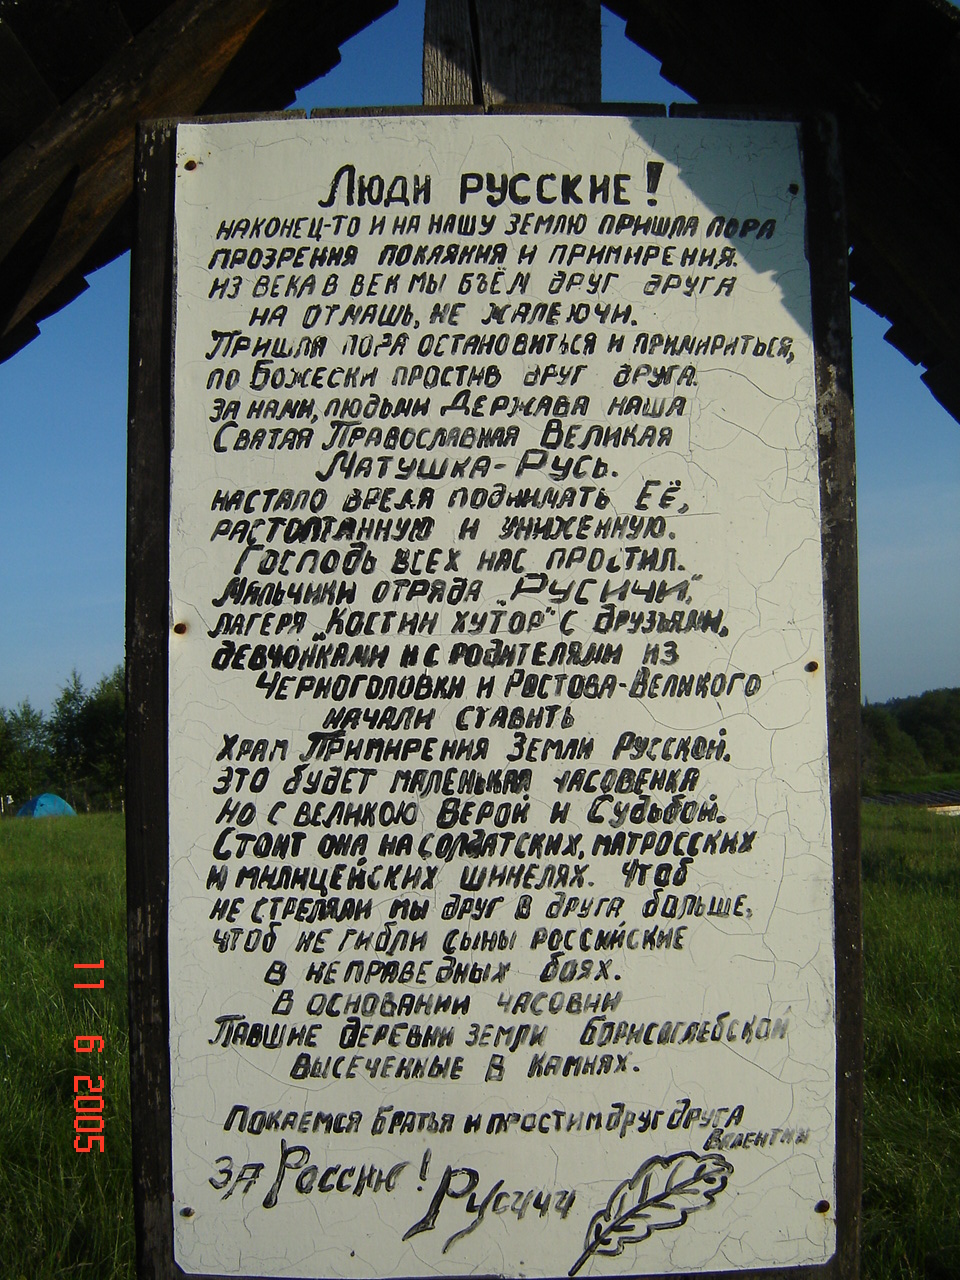 Люди русские!
наконец-то и на нашу землю пришла пора
прозрения покаяния и примирения.
из века в век мы бъём друг друга
на отмашь, не жалеючи.
Пришла пора остановиться и примириться,
по Божески простив друг друга.
за нами, людьми Держава наша
Святая Православная Великая
Матушка-Русь.
настало время поднимать Её,
растоптанную и униженную.
Господь всех нас простил.
Мальчики отряда „Русичи",
лагеря „Костин хутор" с друзьями,
девчонками и с родителями из
Черноголовки и Ростова-Великого
начали ставить
Храм Примирения Земли Русской.
это будет маленькая часовенка
но с великою Верой и Судьбой.
Стоит она на солдатских, матросских
и милицейских шинелях. чтоб
не стреляли мы друг в друга больше,
чтоб не гибли сыны российские
в неправедных боях.
В основании часовни
Павшие деревни земли Борисоглебской
высеченные в камнях.
Покаемся братья и простим друг друга
Валентин
За Россию! Русичи
11 6 2005